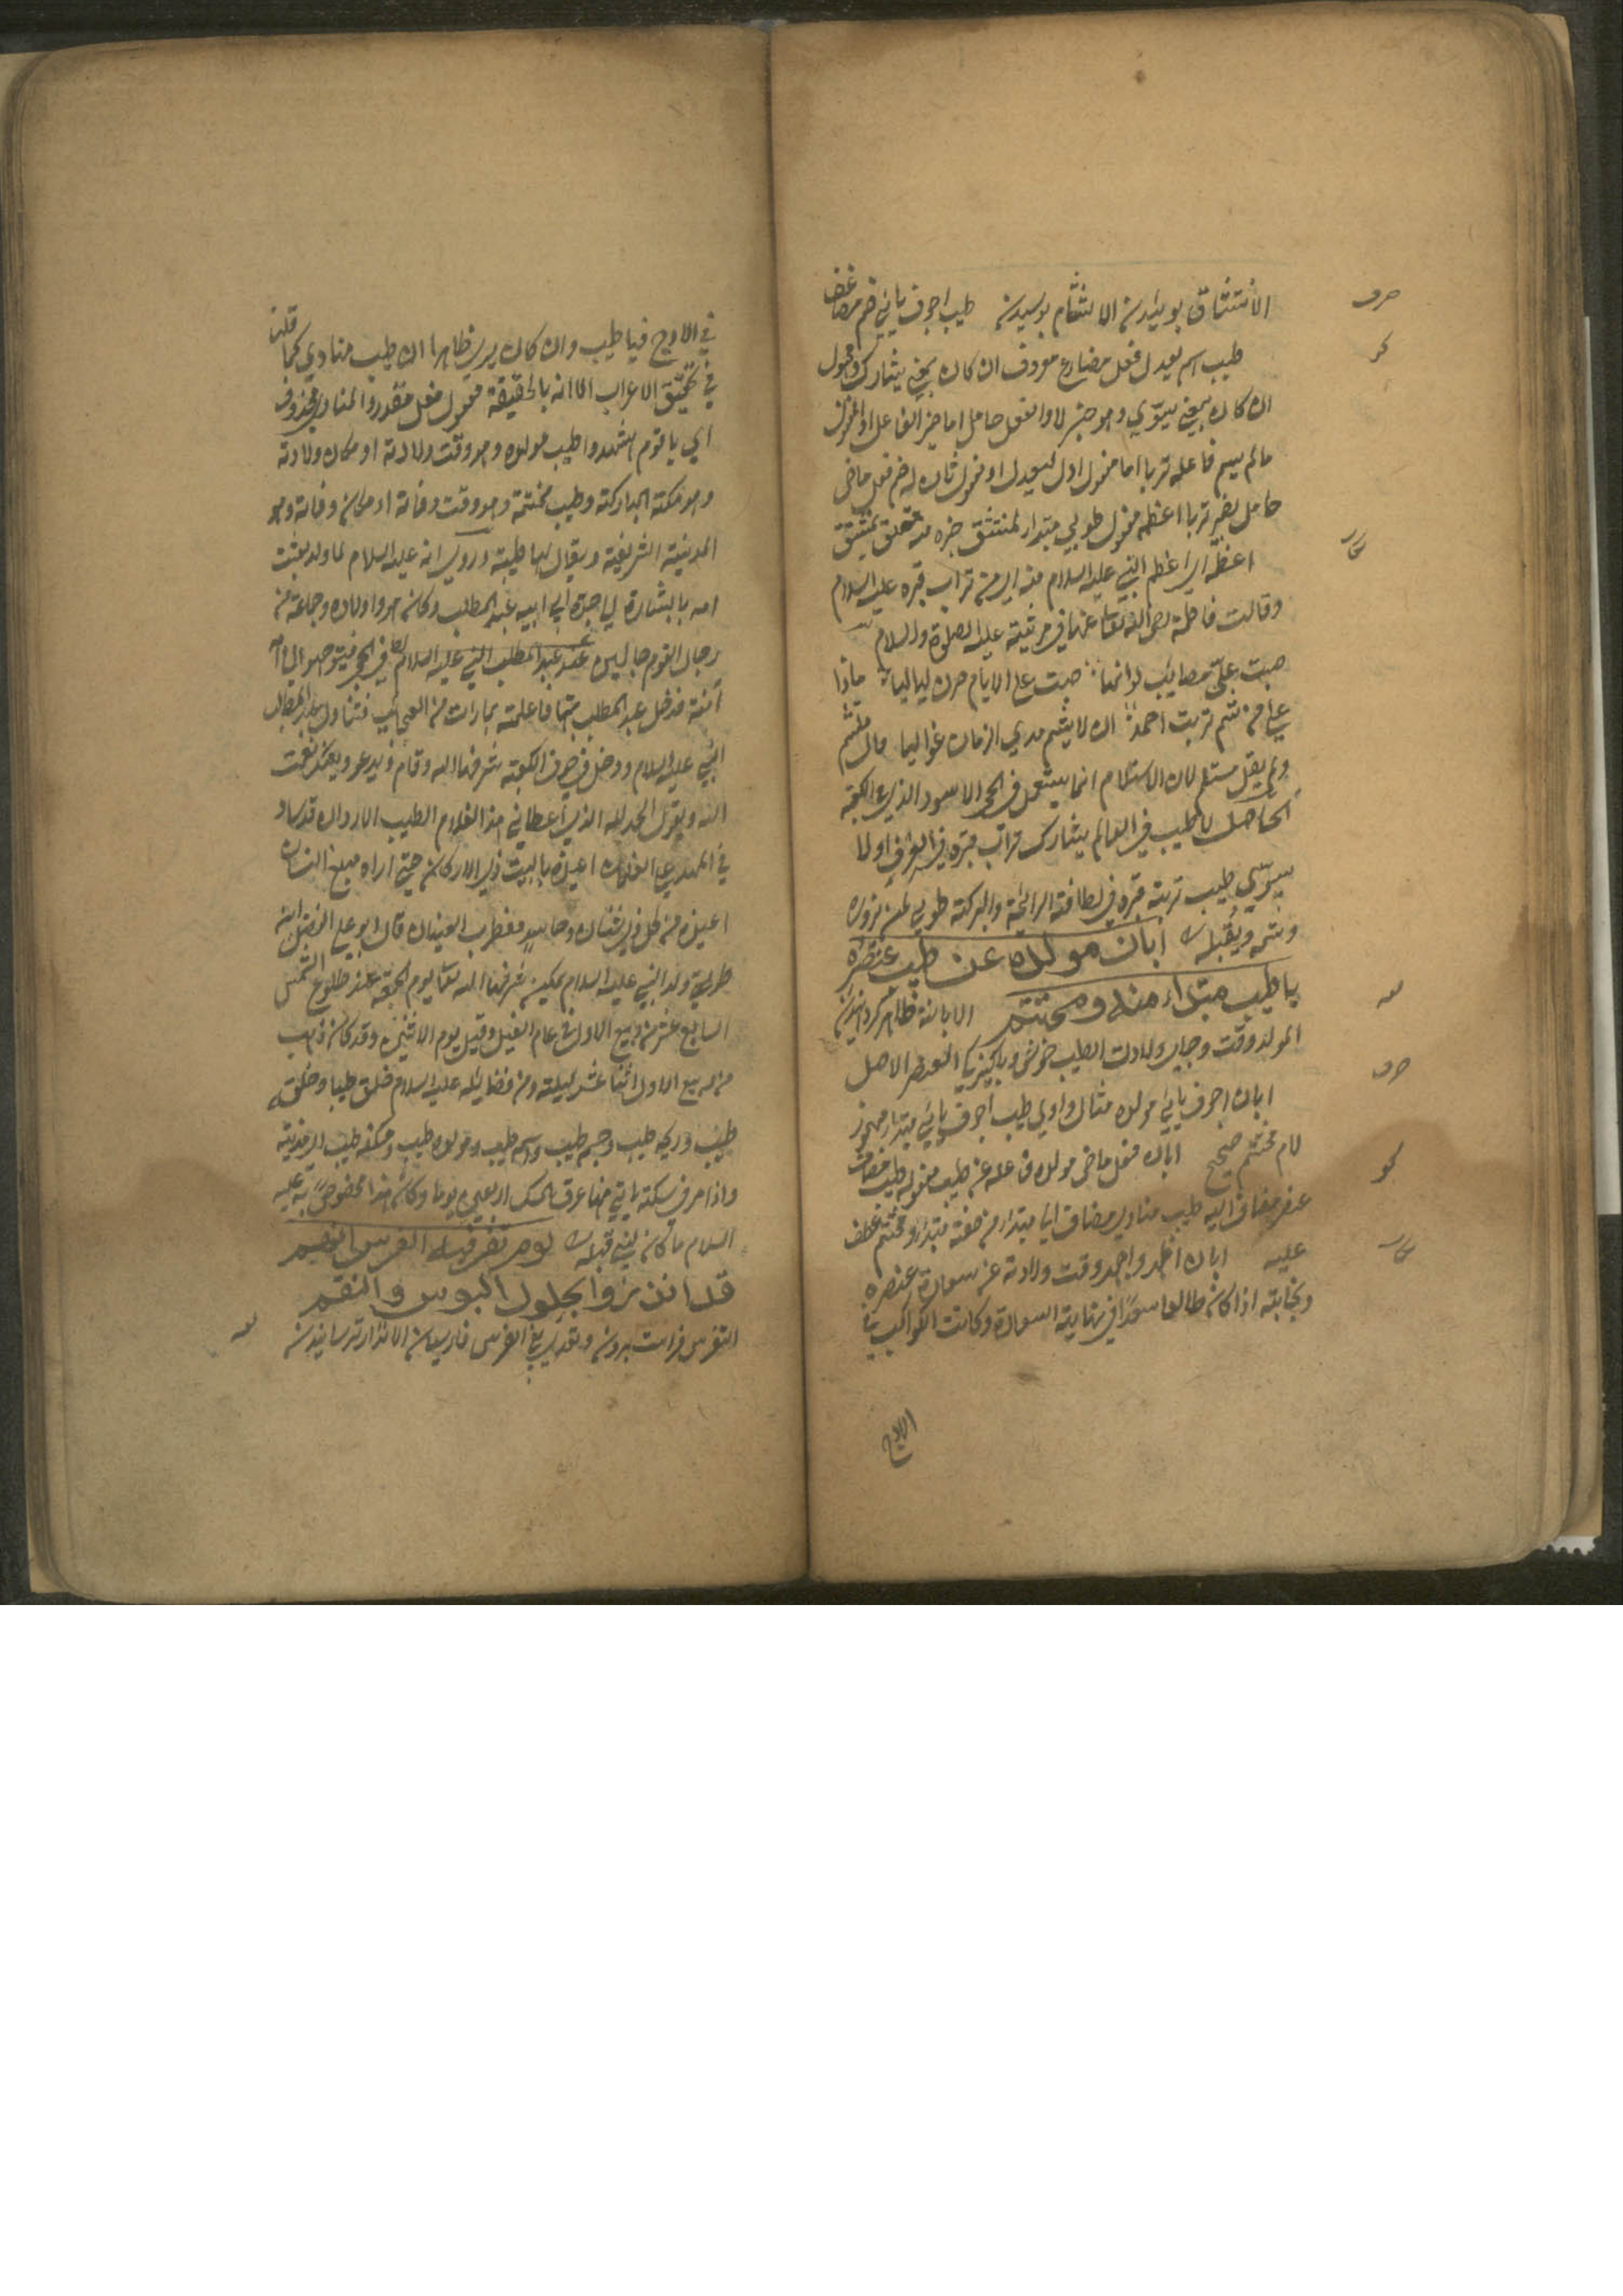 صرف
الانتشاق بوئیدن الالتثام بوسیدن طیب اجوف یائی ضم مضاعف
نحو
طیب اسم یعدل فعل مضارع معروف ان کان بمعنی یشارک ومجهول
ان کان بمعنی یسوی وهو خبر لا والفعل حامل اما ضمیر الفاعل او المفعول
مالم یسم فاعله تربا اما مفعول اول لیعدل او مفعول ثان له ضم فعل ماضی
حامل ضمیر تربا اعظمه مفعول طوبی مبتدا لمنتشق خبره منه متعلق بمنتشق
معا
اعظمه ای اعظم النبی علیه السلام منه ای من تراب قبره علیه السلام
وقالت فاطمة رضی الله تعا عنها فی مرثیته علیه الصلوة والسلام
صبت علیّ مصائب لو انها صبت علی الایام صرن لیالیا ماذا
علی من شم تربت احمد ان لا یشم مدی الزمان غوالیا قال ملتثم
ولم یقل مستلم لان الاستلام انما یستعمل فی الحجر الاسود الذی فی الکعبة
الحاصل لا طیب فی العالم یشارک تراب قبره فی العرف او لا
یسوّی طیب تربة قبره فی لطافة الرائحة والبرکة طوبی لمن یزوره
ویشمه ویقبله ابان مولده عن طیب عنصره
یا طیب مبتداء منه ومختتم الابانة ظاهر کردانیدن
لغه
المولد وقت وجای ولادت الطیب خوش وپاکیزگی العنصر الاصل
صرف
ابان اجوف یائی مولده مثال واوی طیب اجوف یائی مبتدا مهموز
لام مختتم صحیح ابان فعل ماضی مولده فاعله عن طیب مفعوله طیب مضاف
نحو
عنصر مضاف الیه طیب منادی مضاف الی مبتدا من صفة مبتدا ومختتم عطف
علیه ابان اظهر واحمد وقت ولادته عن سعادة عنصره
معا
ونجابته اذا کان طالعا سعدا فی نهایة السعادة وکانت الکواکب
الاوج
فی الاوج فیا طیب وان کان یری ظاهرا ان طیب منادی کما قلنا
فی تحقیق الاعراب الا انه بالحقیقة مفعول فعل مقدر والمنادی محذوف
ای یا قوم اشهدوا طیب مولده وهو وقت ولادته او مکان ولادته
وهو مکة المبارکة وطیب مختتمه وهو وقت وفاته او مکان وفاته وهو
المدینة الشریفة ویقال لها طیبة وروی انه علیه السلام لما ولد بعثت
امه بالبشارة الی جده ابی ابیه عبد المطلب وکان هو واولاده وجماعة من
رجال القوم جالسین عند عبد المطلب النبی علیه السلام فی الحجر فتوجهوا الی
آمنة فدخل عبد المطلب علیها فاعلمته بما رات من العجایب فتناول عبد المطلب
النبی علیه السلام ودخل فی جوف الکعبة شرفها الله وقام ویدعو ویشکر نعمت
الله ویقول الحمد لله الذی اعطانی هذا الغلام الطیب الاردان قد ساد
فی المهد علی الغلمان اعیذه بالبیت ذی الارکان حتی اراه مبلغ البنیان
اعیذه من کل ذی شنآن وحاسد مضطرب العینان قال ابو علی الفضل بن
طبرسی ولد النبی علیه السلام بمکة شرفها الله تعا یوم الجمعة عند طلوع الشمس
السابع عشر من ربیع الاول فی عام الفیل وقیل یوم الاثنین وقد کان ذهب
من ربیع الاول اثنا عشر لیلة ومن فضائله علیه السلام خلق طیبا وخلقه
طیب وریحه طیب وجسمه طیب واسمه طیب ومولده طیب ومسکنه طیب ای مدینة
واذا مر فی سکة یاتی منها عرق المسک اربعین یوما وکان هذا مخصوصا به علیه
السلام ما کان لنبی قبله یوم تفرس فیه الفرس انهم
قد انذروا بحلول البوس والنقم
لغه
التفرس فراست بردن وتقدیر یاء الفرس فارسیان الانذار ترسانیدن